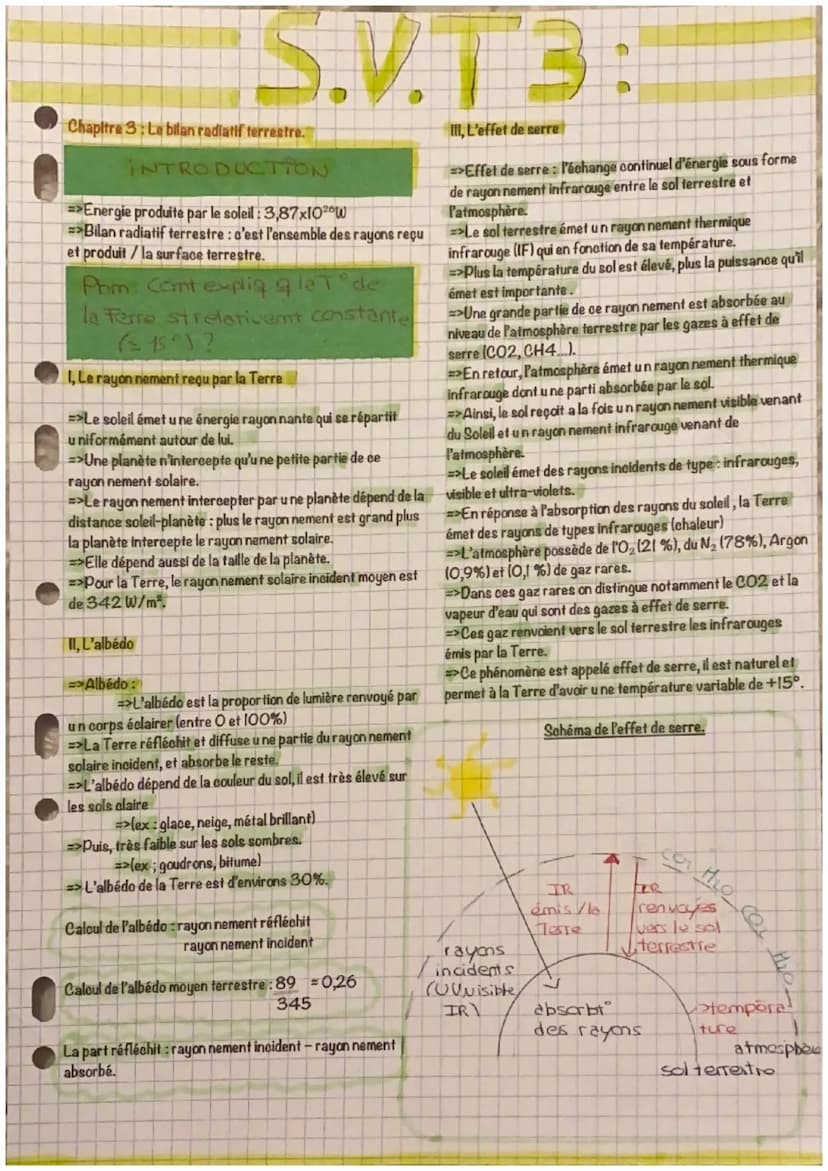 S.V.T 3 :
Chapitre 3 : Le bilan radiatif terrestre.
INTRODUCTION
=>Energie produite par le soleil : 3,87x10²⁶W
=>Bilan radiatif terrestre : c'est l'ensemble des rayons reçu
et produit / la surface terrestre.
Pbm: Comt expliq q la T° de
la Terre st relativemt constante
(≈ 15°) ?
I, Le rayonnement reçu par la Terre
=>Le soleil émet une énergie rayonnante qui se répartit
uniformément autour de lui.
=>Une planète n'intercepte qu'une petite partie de ce
rayonnement solaire.
=>Le rayonnement intercepter par une planète dépend de la
distance soleil-planète : plus le rayonnement est grand plus
la planète intercepte le rayonnement solaire.
=>Elle dépend aussi de la taille de la planète.
=>Pour la Terre, le rayonnement solaire incident moyen est
de 342 W/m².
II, L'albédo
=>Albédo :
=>L'albédo est la proportion de lumière renvoyé par
un corps éclairer (entre 0 et 100%)
=>La Terre réfléchit et diffuse une partie du rayonnement
solaire incident, et absorbe le reste.
=>L'albédo dépend de la couleur du sol, il est très élevé sur
les sols claire
=>(ex : glace, neige, métal brillant)
=>Puis, très faible sur les sols sombres.
=>(ex ; goudrons, bitume)
=> L'albédo de la Terre est d'environs 30%.
Calcul de l'albédo : rayonnement réfléchit
rayonnement incident
Calcul de l'albédo moyen terrestre : 89 = 0,26
345
La part réfléchit : rayonnement incident – rayonnement
absorbé.
III, L'effet de serre
=>Effet de serre : l'échange continuel d'énergie sous forme
de rayonnement infrarouge entre le sol terrestre et
l'atmosphère.
=>Le sol terrestre émet un rayonnement thermique
infrarouge (IF) qui en fonction de sa température.
=>Plus la température du sol est élevé, plus la puissance qu'il
émet est importante.
=>Une grande partie de ce rayonnement est absorbée au
niveau de l'atmosphère terrestre par les gazes à effet de
serre (CO2, CH4...).
=>En retour, l'atmosphère émet un rayonnement thermique
infrarouge dont une parti absorbée par le sol.
=>Ainsi, le sol reçoit a la fois un rayonnement visible venant
du Soleil et un rayonnement infrarouge venant de
l'atmosphère.
=>Le soleil émet des rayons incidents de type : infrarouges,
visible et ultra-violets.
=>En réponse à l'absorption des rayons du soleil, la Terre
émet des rayons de types infrarouges (chaleur)
=>L'atmosphère possède de l'O₂ (21 %), du N₂ (78%), Argon
(0,9%) et (0,1 %) de gaz rares.
=>Dans ces gaz rares on distingue notamment le CO2 et la
vapeur d'eau qui sont des gazes à effet de serre.
=>Ces gaz renvoient vers le sol terrestre les infrarouges
émis par la Terre.
=>Ce phénomène est appelé effet de serre, il est naturel et
permet à la Terre d'avoir une température variable de +15°.
Schéma de l'effet de serre.
CO2 H2O CO2 H2O
IR
émis / la
Terre
IR
renvoyés
vers le sol
terrestre
rayons
incidents
(UV,visible
IR)
absorbt°
des rayons
>tempéra-
ture
atmosphère
sol terrestre